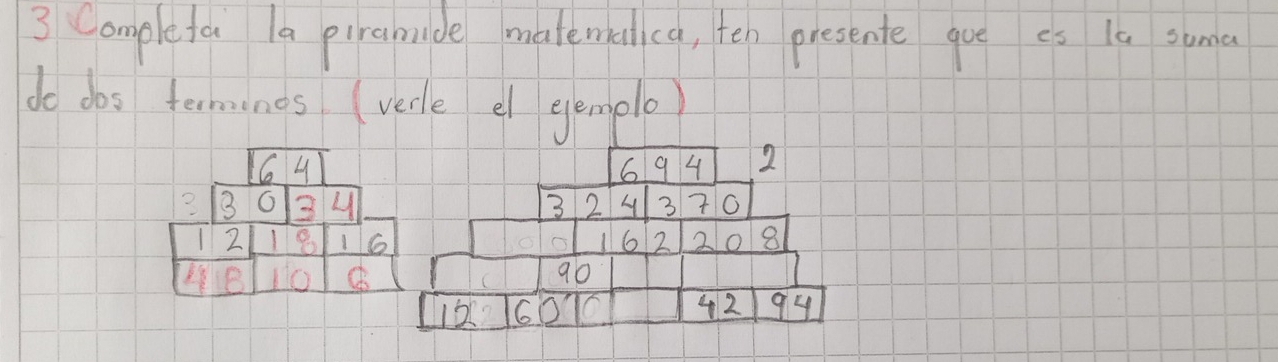 3 Completa la piramide matematica, ten presente que es la suma
de dos terminos. (verle el ejemplo)
64
3 30 34
12 18 16
4 8 10 6
694 2
324 370
162 208
90
12 60 42 94